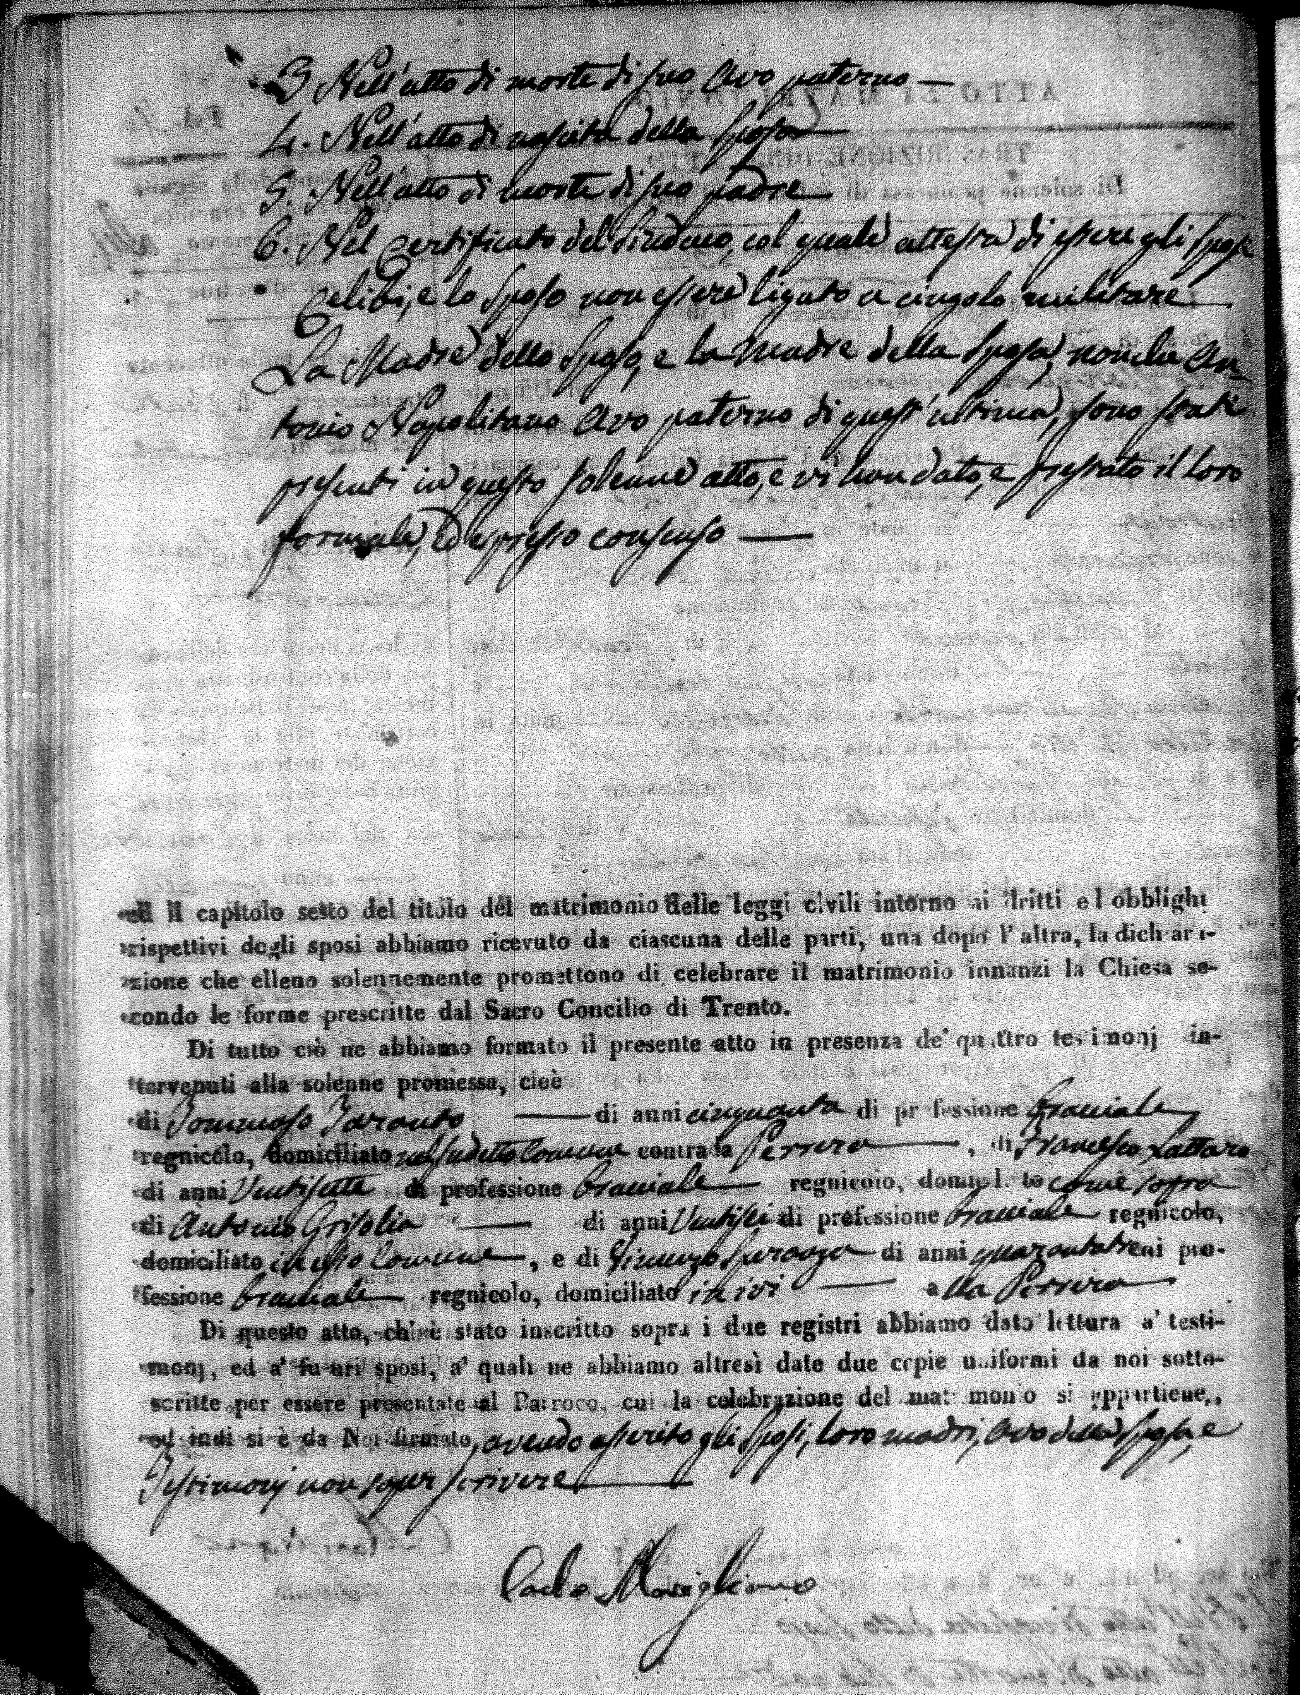 3 Nell'atto di morte di suo Avo paterno —
4. Nell'atto di nascita della Sposa —
5. Nell'atto di morte di suo padre —
6. Nel Certificato del Sindaco, col quale attesta di essere gli Sposi
Celibi, e lo Sposo non essere ligato a cingolo militare —
La Madre dello Sposo, e la madre della Sposa, nonche An-
tonio Napolitano Avo paterno di quest'ultima, sono stati
presenti in questo solenne atto, e vi han dato, e prestato il loro
formale, ed espresso consenso —
ed il capitolo sesto del titolo del matrimonio delle leggi civili intorno ai dritti e l obblighi
rispettivi degli sposi abbiamo ricevuto da ciascuna delle parti, una dopo l' altra, la dichiara-
zione che elleno solennemente promettono di celebrare il matrimonio innanzi la Chiesa se-
condo le forme prescritte dal Sacro Concilio di Trento.
Di tutto ciò ne abbiamo formato il presente atto in presenza de' quattro testimonj in-
tervenuti alla solenne promessa, cioè
di Tommaso Taranto — di anni cinquanta di professione bracciale
regnicolo, domiciliato nel sudetto Comune contrada Perrera —, di Francesco Lattaro
di anni Ventisette di professione bracciale — regnicolo, domiciliato come sopra
di Antonio Grisolia — di anni Ventisei di professione bracciale regnicolo,
domiciliato in esso Comune —, e di Vincenzo di anni quarantatre ni pro-
fessione bracciale — regnicolo, domiciliato in ivi — alla Perrera —
Di questo atto, ch'è stato inscritto sopra i due registri abbiamo dato lettura a' testi-
monj, ed a' futuri sposi, a' quali ne abbiamo altresì date due copie uniformi da noi sotto-
scritte per essere presentate al Parroco, cui la celebrazione del matrimonio si appartiene,
ed indi si è da Noi firmato, avendo asserito gli Sposi, loro madri, Avo della Sposa, e
Testimonj non saper scrivere —
Carlo Marigliano